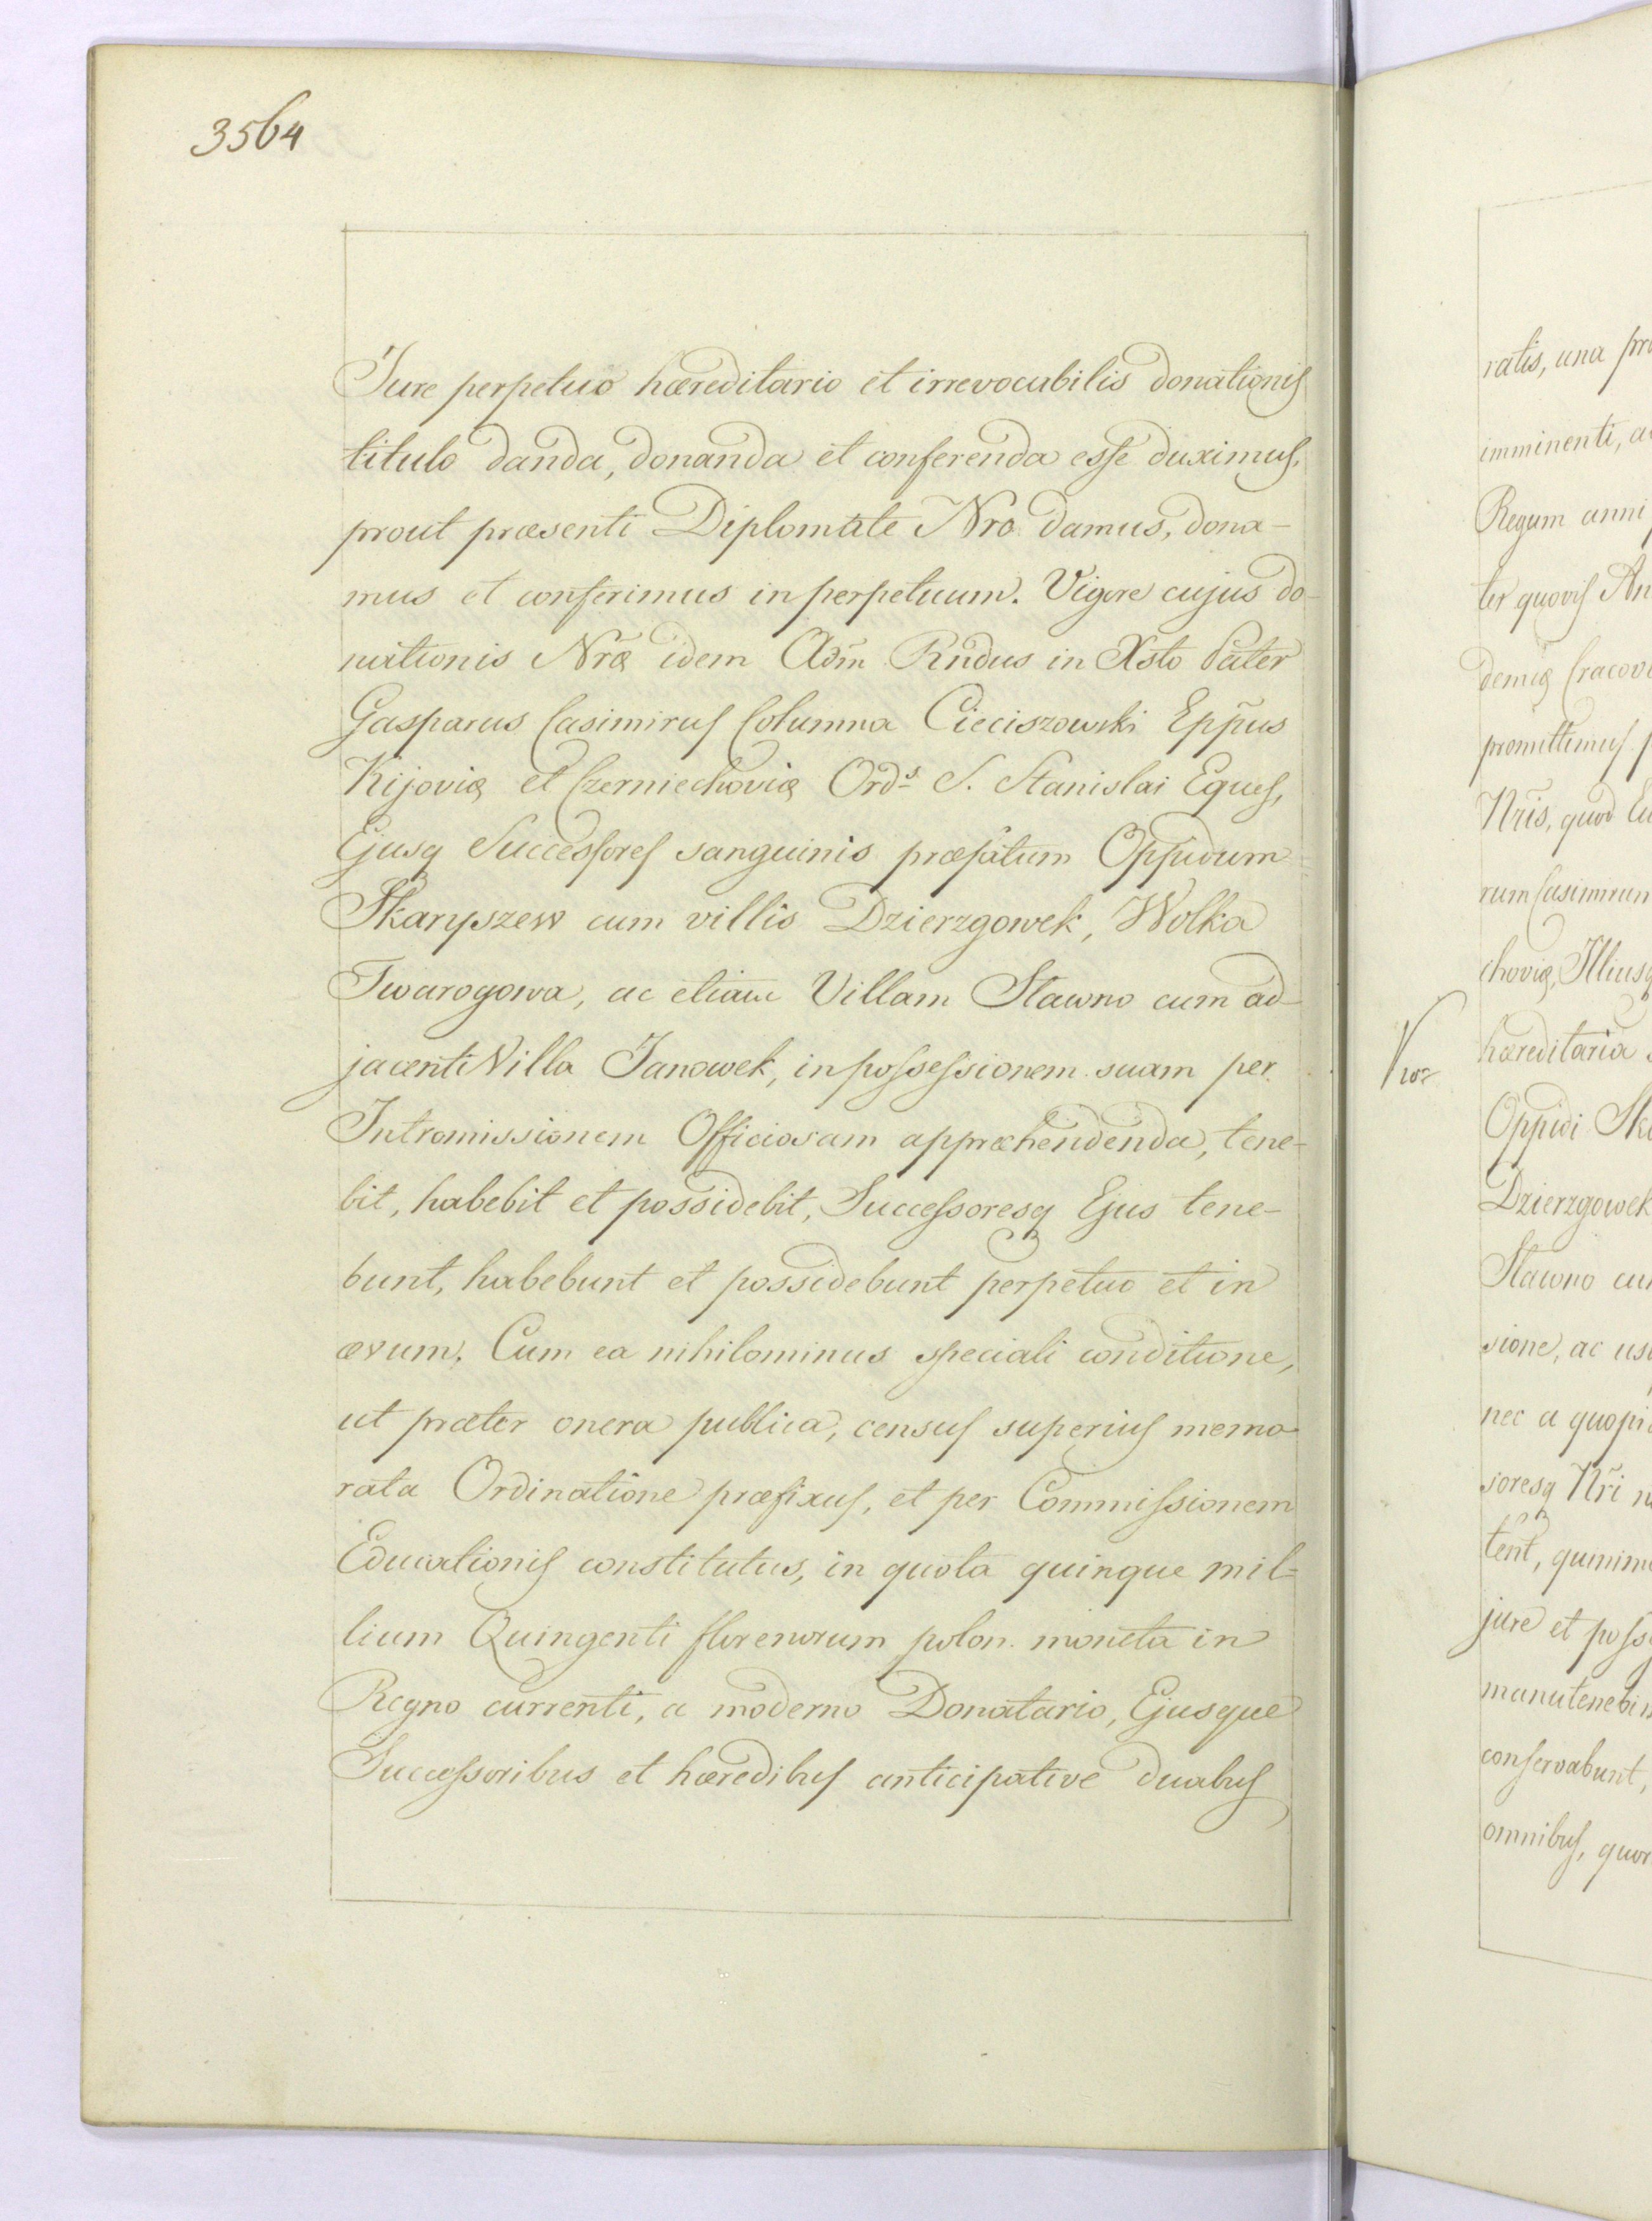 3564
Jure perpetuo hæreditario et irrevocabilis donationis
titulo danda, donanda et conferenda esse duximus,
prout præsenti Diplomate Nro damus, dona-
mus et conferimus in perpetuum. Vigore cujus do-
nationis Nræ idem Adm Rndus in Xsto Pater
Gasparus Casimirus Columna Cieciszowski Eppus
Kijoviæ et Czerniechoviæ Ord.s S. Stanislai Eques,
Ejusq Successores sanguinis præfatum Oppidum
Skaryszew cum villis Dzierzgowek, Wolka
Twarogowa, ac etiam Villam Stawno cum ad-
jacenti Villa Janowek, in possessionem suam per
Intromissionem Officiosam appræhendenda, tene-
bit, habebit et possidebit, Successoresq Ejus tene-
bunt, habebunt et possidebunt perpetuo et in
ævum. Cum ea nihilominus speciali conditione,
ut præter onera publica, census superius memo-
rata Ordinatione præfixus, et per Commissionem
Educationis constitutus, in quota quinque mil-
lium Quingenti florenorum polon. moneta in
Regno currenti, a moderno Donatario, Ejusque
Successoribus et hæredibus anticipative duabus
ratis, una
imminenti,
Regum anni
ter quovis
demiæ
promittimus
Nris, quod
rum Casimirum
choviæ, Illiusq
hæreditaria
Oppidi
Dzierzgowek
Stawno
sione, ac
nec a
soresq Nri
tent,
jure et
manutenebi
conservabunt,
omnibus,